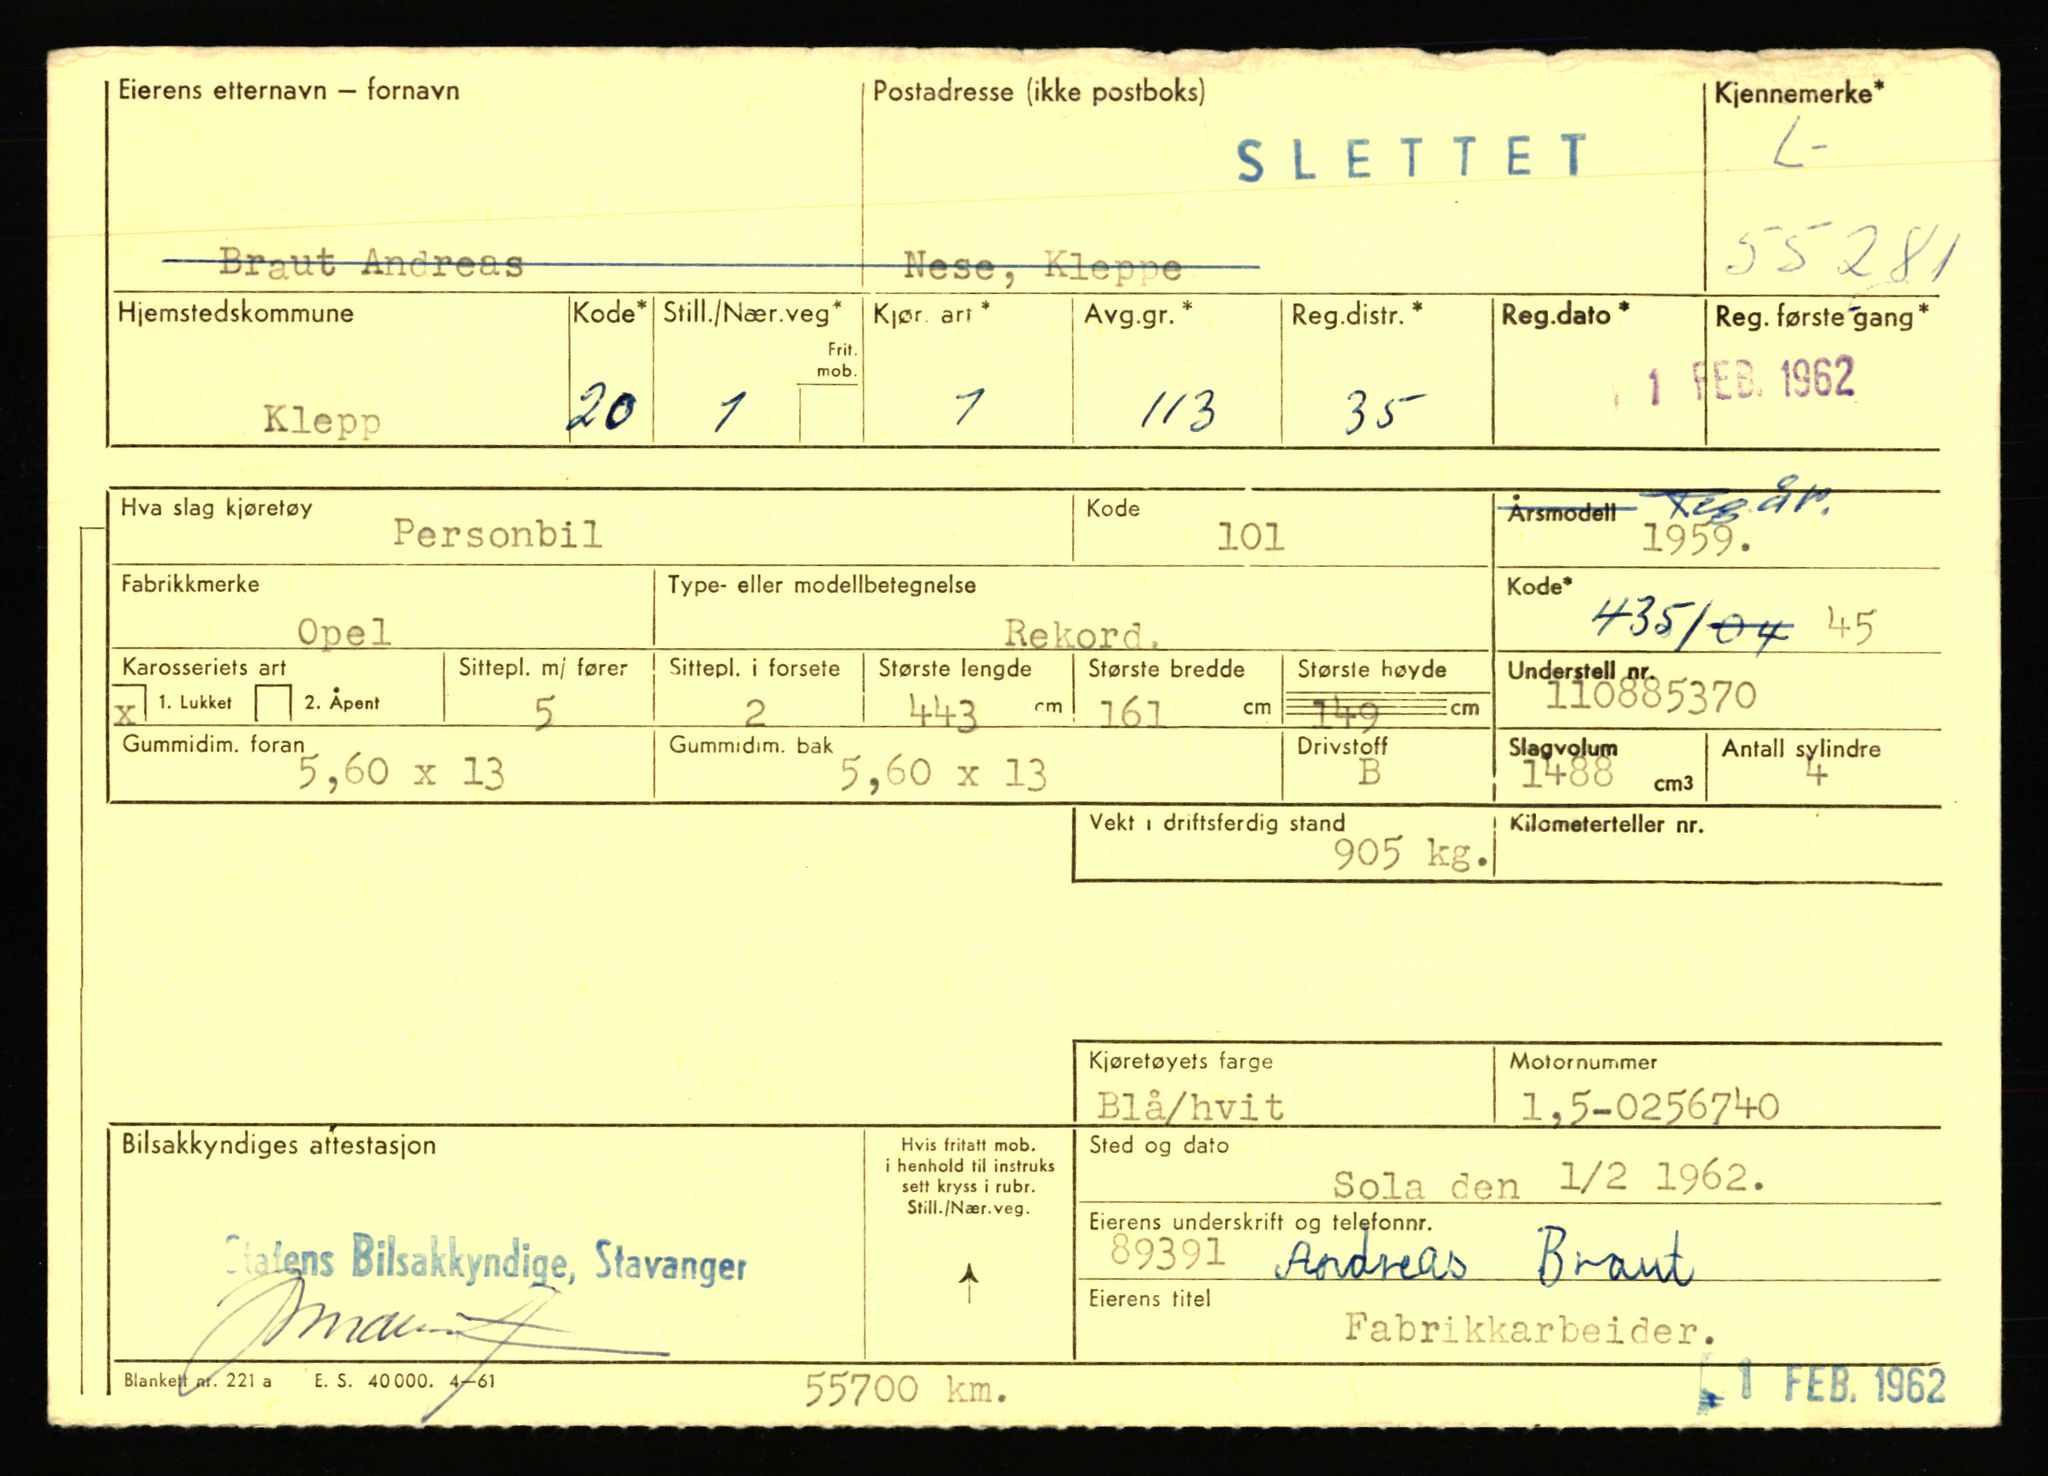 Eierens etternavn – fornavn
Postadresse (ikke postboks)
Kjennemerke*
SLETTET
L-
55281
Braut Andreas
Nese, Kleppe
Hjemstedskommune
Kode*
Still./Nær.veg*
Frit.
mob.
Kjør. art*
Avg.gr.*
Reg.distr.*
Reg.dato*
Reg. første gang*
1 FEB. 1962
Klepp
20
1
1
113
35
Hva slag kjøretøy
Personbil
Kode
101
Årsmodell
Reg.år.
1959.
Fabrikkmerke
Opel
Type- eller modellbetegnelse
Rekord.
Kode*
435/04 45
Karosseriets art
x 1. Lukket 2. Åpent
Sittepl. m/ fører
5
Sittepl. i forsete
2
Største lengde
443 cm
Største bredde
161 cm
Største høyde
149 cm
Understell nr.
110885370
Gummidim. foran
5,60 x 13
Gummidim. bak
5,60 x 13
Drivstoff
B
Slagvolum
1488 cm3
Antall sylindre
4
Vekt i driftsferdig stand
905 kg.
Kilometerteller nr.
Kjøretøyets farge
Blå/hvit
Motornummer
1,5-0256740
Bilsakkyndiges attestasjon
Hvis fritatt mob.
i henhold til instruks
sett kryss i rubr.
Still./Nær.veg.
Sted og dato
Sola den 1/2 1962.
Statens Bilsakkyndige, Stavanger
Eierens underskrift og telefonnr.
89391 Andreas Braut
Eierens titel
Fabrikkarbeider.
Blankett nr. 221 a E. S. 40000. 4–61
55700 km.
1 FEB. 1962